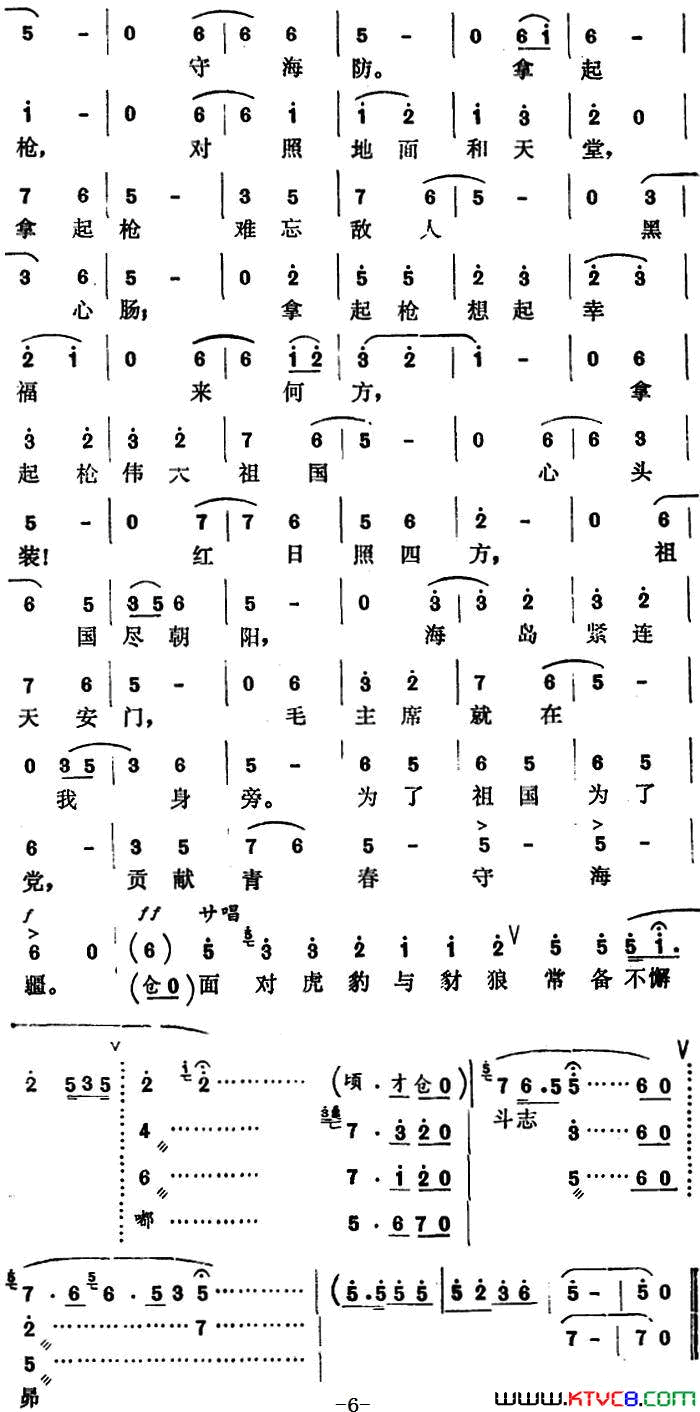 5 - | 0 6 | 6 6 | 5 - | 0 6 i | 6 - |
守 海 防。 拿 起
i - | 0 6 | 6 i | i 2 | i 3 | 2 0 |
枪, 对 照 地 面 和 天 堂,
7 6 | 5 - | 3 5 | 7 6 | 5 - | 0 3 |
拿 起 枪 难 忘 敌 人 黑
3 6 | 5 - | 0 2 | 5 5 | 2 3 | 2 3 |
心 肠; 拿 起 枪 想 起 幸
2 i | 0 6 | 6 i 2 | 3 2 | i - | 0 6 |
福 来 何 方, 拿
3 2 | 3 2 | 7 6 | 5 - | 0 6 | 6 3 |
起 枪 伟 大 祖 国 心 头
5 - | 0 7 | 7 6 | 5 6 | 2 - | 0 6 |
装! 红 日 照 四 方, 祖
6 5 | 3 5 6 | 5 - | 0 3 | 3 2 | 3 2 |
国 尽 朝 阳, 海 岛 紧 连
7 6 | 5 - | 0 6 | 3 2 | 7 6 | 5 - |
天 安 门, 毛 主 席 就 在
0 3 5 | 3 6 | 5 - | 6 5 | 6 5 | 6 5 |
我 身 旁。 为 了 祖 国 为 了
6 - | 3 5 | 7 6 | 5 - | 5 - | 5 - |
党, 贡 献 青 春 守 海
f ff サ唱
6 0 (6) 5 5 3 3 2 i i 2 V 5 5 5 i.
疆。 (仓 0) 面 对 虎 豹 与 豺 狼 常 备 不 懈
V V
2 5 3 5 2 i 2 (顷 . 才 仓 0) 5 7 6 . 5 5 6 0
斗 志
4 7 . 3 2 0 3 6 0
6 7 . i 2 0 5 6 0
嘟 5 . 6 7 0
5 7 . 6 5 6 . 5 3 5 | (5 . 5 5 5 | 5 2 3 6 | 5 - | 5 0
2 7 7 - | 7 0
5
昴
-6-
WWW.KTVC8.COM